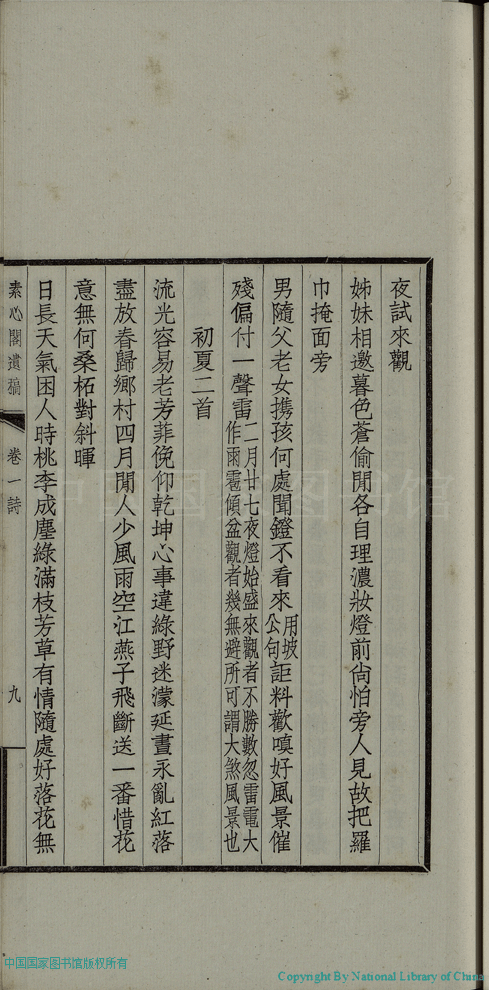 夜試來觀
姊妹相邀暮色蒼偷閒各自理濃妝燈前尙怕旁人見故把羅
巾掩面旁
男隨父老女攜孩何處聞鐙不看來用坡公句詎料歡嗔好風景催
殘偏付一聲雷二月廿七夜燈始盛來觀者不勝數忽雷電大作雨雹傾盆觀者幾無避所可謂大煞風景也
初夏二首
流光容易老芳菲俛仰乾坤心事違綠野迷濛延晝永亂紅落
盡放春歸鄉村四月閒人少風雨空江燕子飛斷送一番惜花
意無何桑柘對斜暉
日長天氣困人時桃李成塵綠滿枝芳草有情隨處好落花無
素心閣遺稿 卷一詩 九
中国国家图书馆
中国国家图书馆版权所有
Copyright By National Library of China